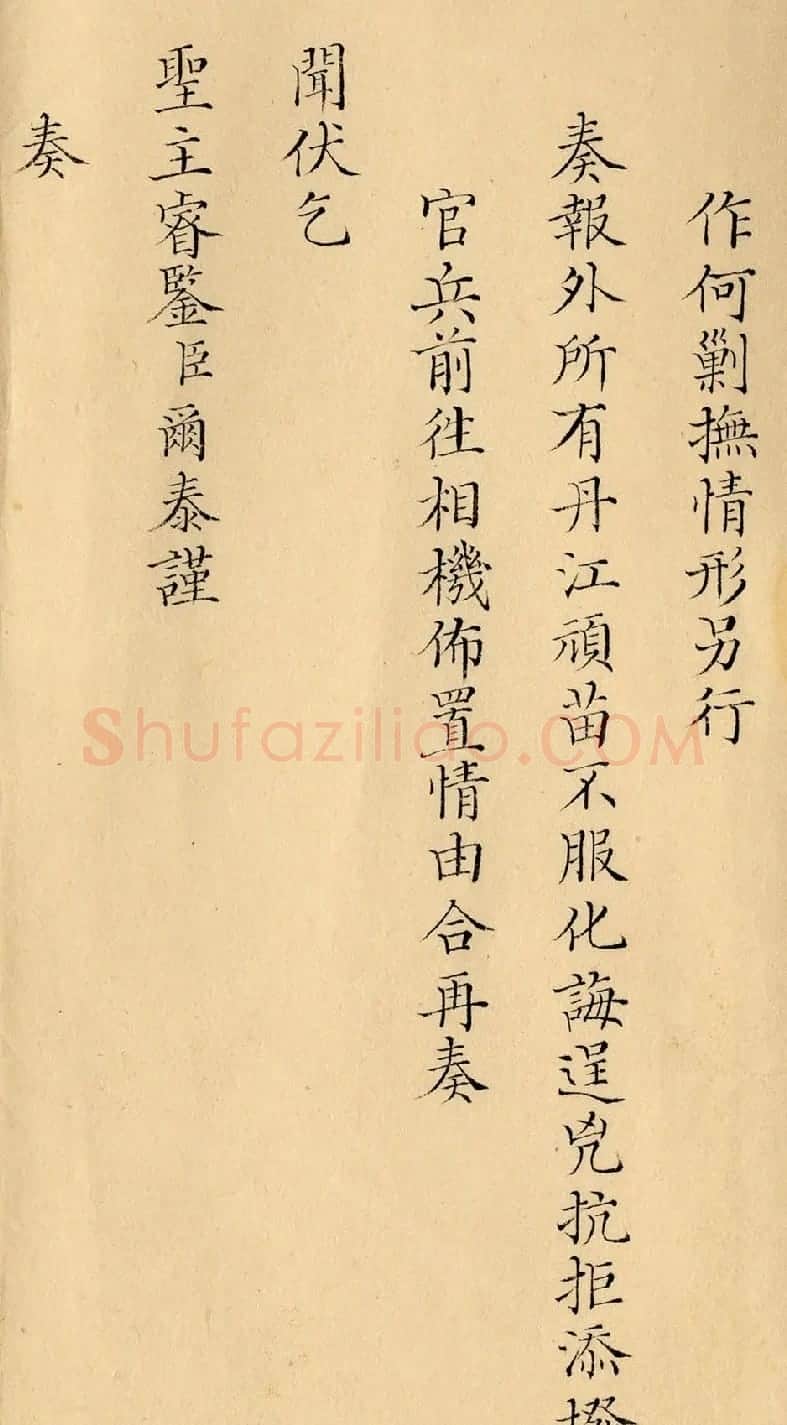 作何剿撫情形另行
奏報外所有丹江頑苗不服化誨逞兇抗拒添撥
官兵前往相機佈置情由合再奏
聞伏乞
聖主睿鑒臣爾泰謹
奏
Shufaziliao.COM